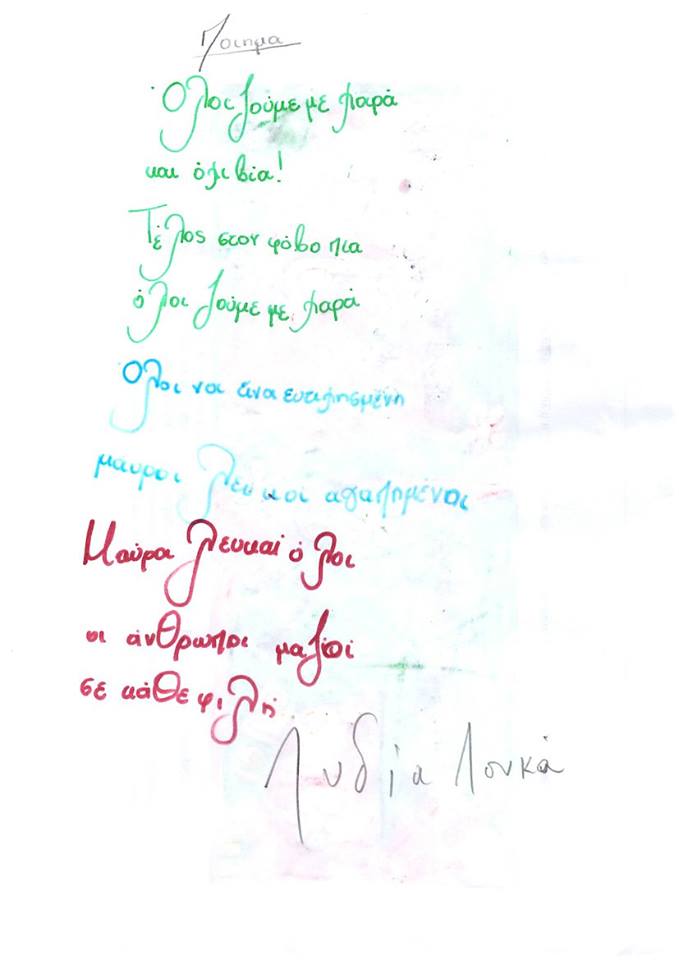 Ποιημα
Όλοι ζούμε με χαρά
και όχι βία!
Τέλος στον φόβο πια
όλοι ζούμε με χαρά
Όλοι να είναι ευτιχησμένη
μαυροι λευκοί αγαπημένοι
Μαύροι λευκοί όλοι
οι άνθρωποι μαζί
σε κάθε φιλή
Λυδία Λουκά